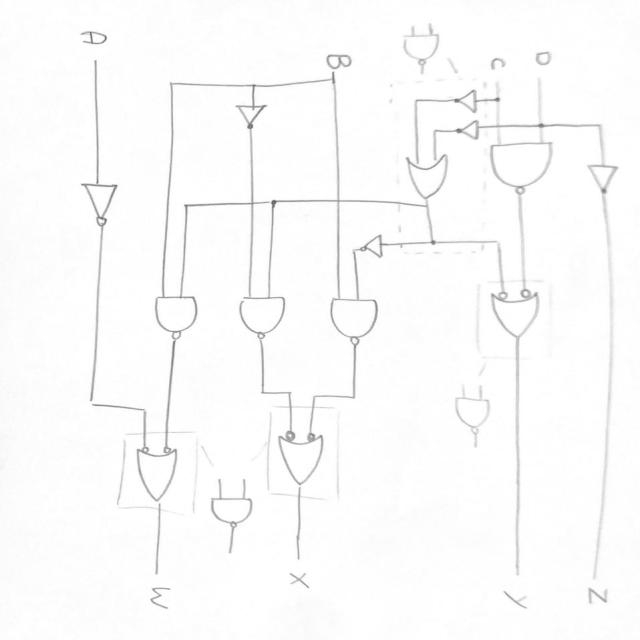 A
B
C
D
W
X
Y
Z